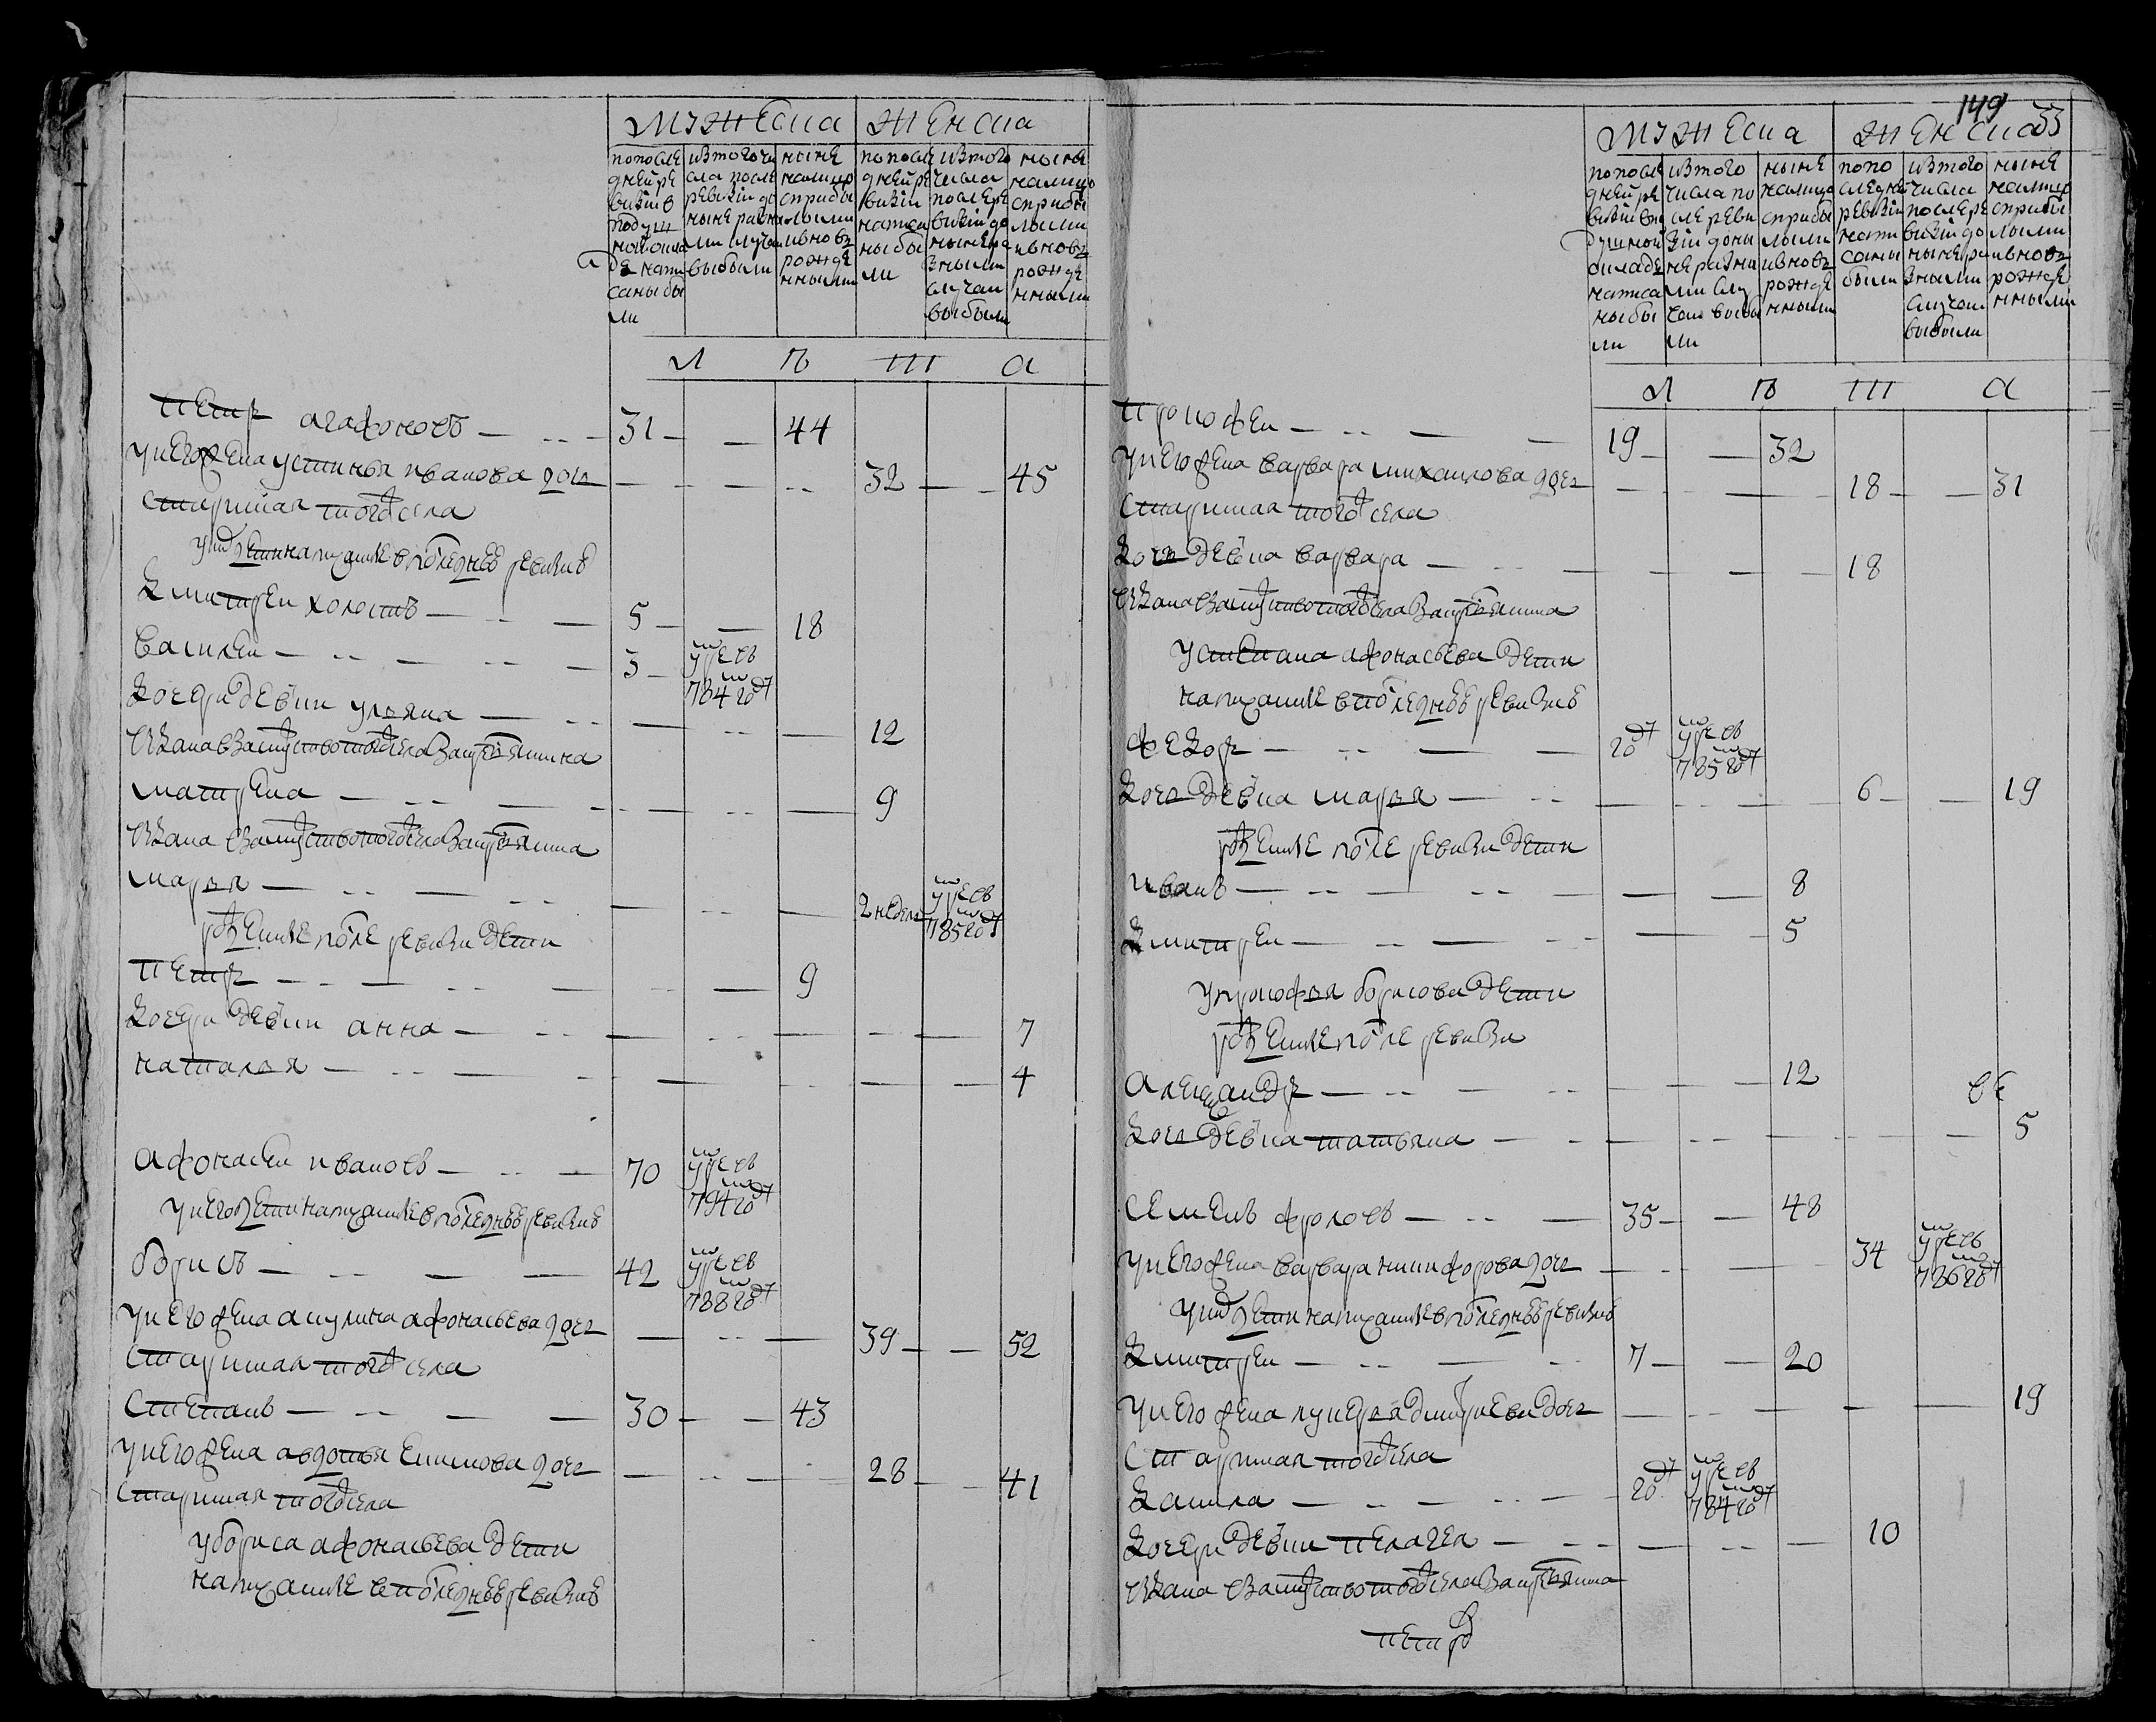 мужеска
женска
попосле днейре визiив подуш номокла де напи саны бы ли
изтогочи сла после ревизiи до ныне разны ми случаи выбыли
ныне налицо сприбы лыми ивновь рожде нными
попосле днейре визiи написа ныбы ли
изтого числа послере визiи до ныне ра зными случаи выбыли
ныне налицо сприбы лыми ивновь рожде нными
л
п
ш
а
петр агафоновъ — 31 — 44
унего жена устинья иванова дочь — 32 — 45
старинная того села
уних дети написанные впоследней ревизиъ
дмитреи холостъ — 5 — 18
василеи — 3 — умре въ 784 году
дочери девки ульяна — 12
матрена — 9
марья — 2 недел умре въ 785 году
рожденные после ревизи дети
петр — 9
дочери девки анна — 7
наталья — 4
афонасеи ивановъ — 70 умре въ 794 году
унего дети написанные впоследней ревизиъ
борисъ — 42 умре въ 788 году
унего жена акулина афонасьева дочь — 39 — 52
старинная того села
степанъ — 30 — 43
унего жена авдотья екимова дочь — 28 — 41
старинная того села
убориса афонасьева дети
написанные впоследней ревизиъ
149
мужеска
женска
попосле днейре визiивпо душном окладе написа ныбы ли
изтого числа по сле реви зiи доны не разны ми слу чаи выбы ли
ныне налицо сприбы лыми ивновь рожде нными
попо следней ревизiи напи саны были
изтого числа послере визiи до ныне ра зными случаи выбыли
ныне налицо сприбы лыми ивновь рожде нными
л
п
ш
а
прокофеи — 19 — 32
унего жена варвара михаилова дочь — 18 — 31
старинная того села
дочь девка варвара — 18
устепана афонасьева дети
написанные впоследней ревизиъ
федор — 20 умре въ 785 году
дочь девка марья — 6 — 19
рожденные после ревизи дети
иванъ — 8
дмитреи — 5
упрокофья борисова дети
рожденные после ревизи
александр — 12
дочь девка татьяна — 5
семенъ фроловъ — 35 — 48
унего жена варвара никифорова дочь — 34 умре въ 786 году
уних дети написанные впоследней ревизиъ
дмитреи — 7 — 20
унего жена лукерья дмитриева дочь — 19
старинная того села
данила — 20 умре въ 784 году
дочери девки пелагея — 10
петръ